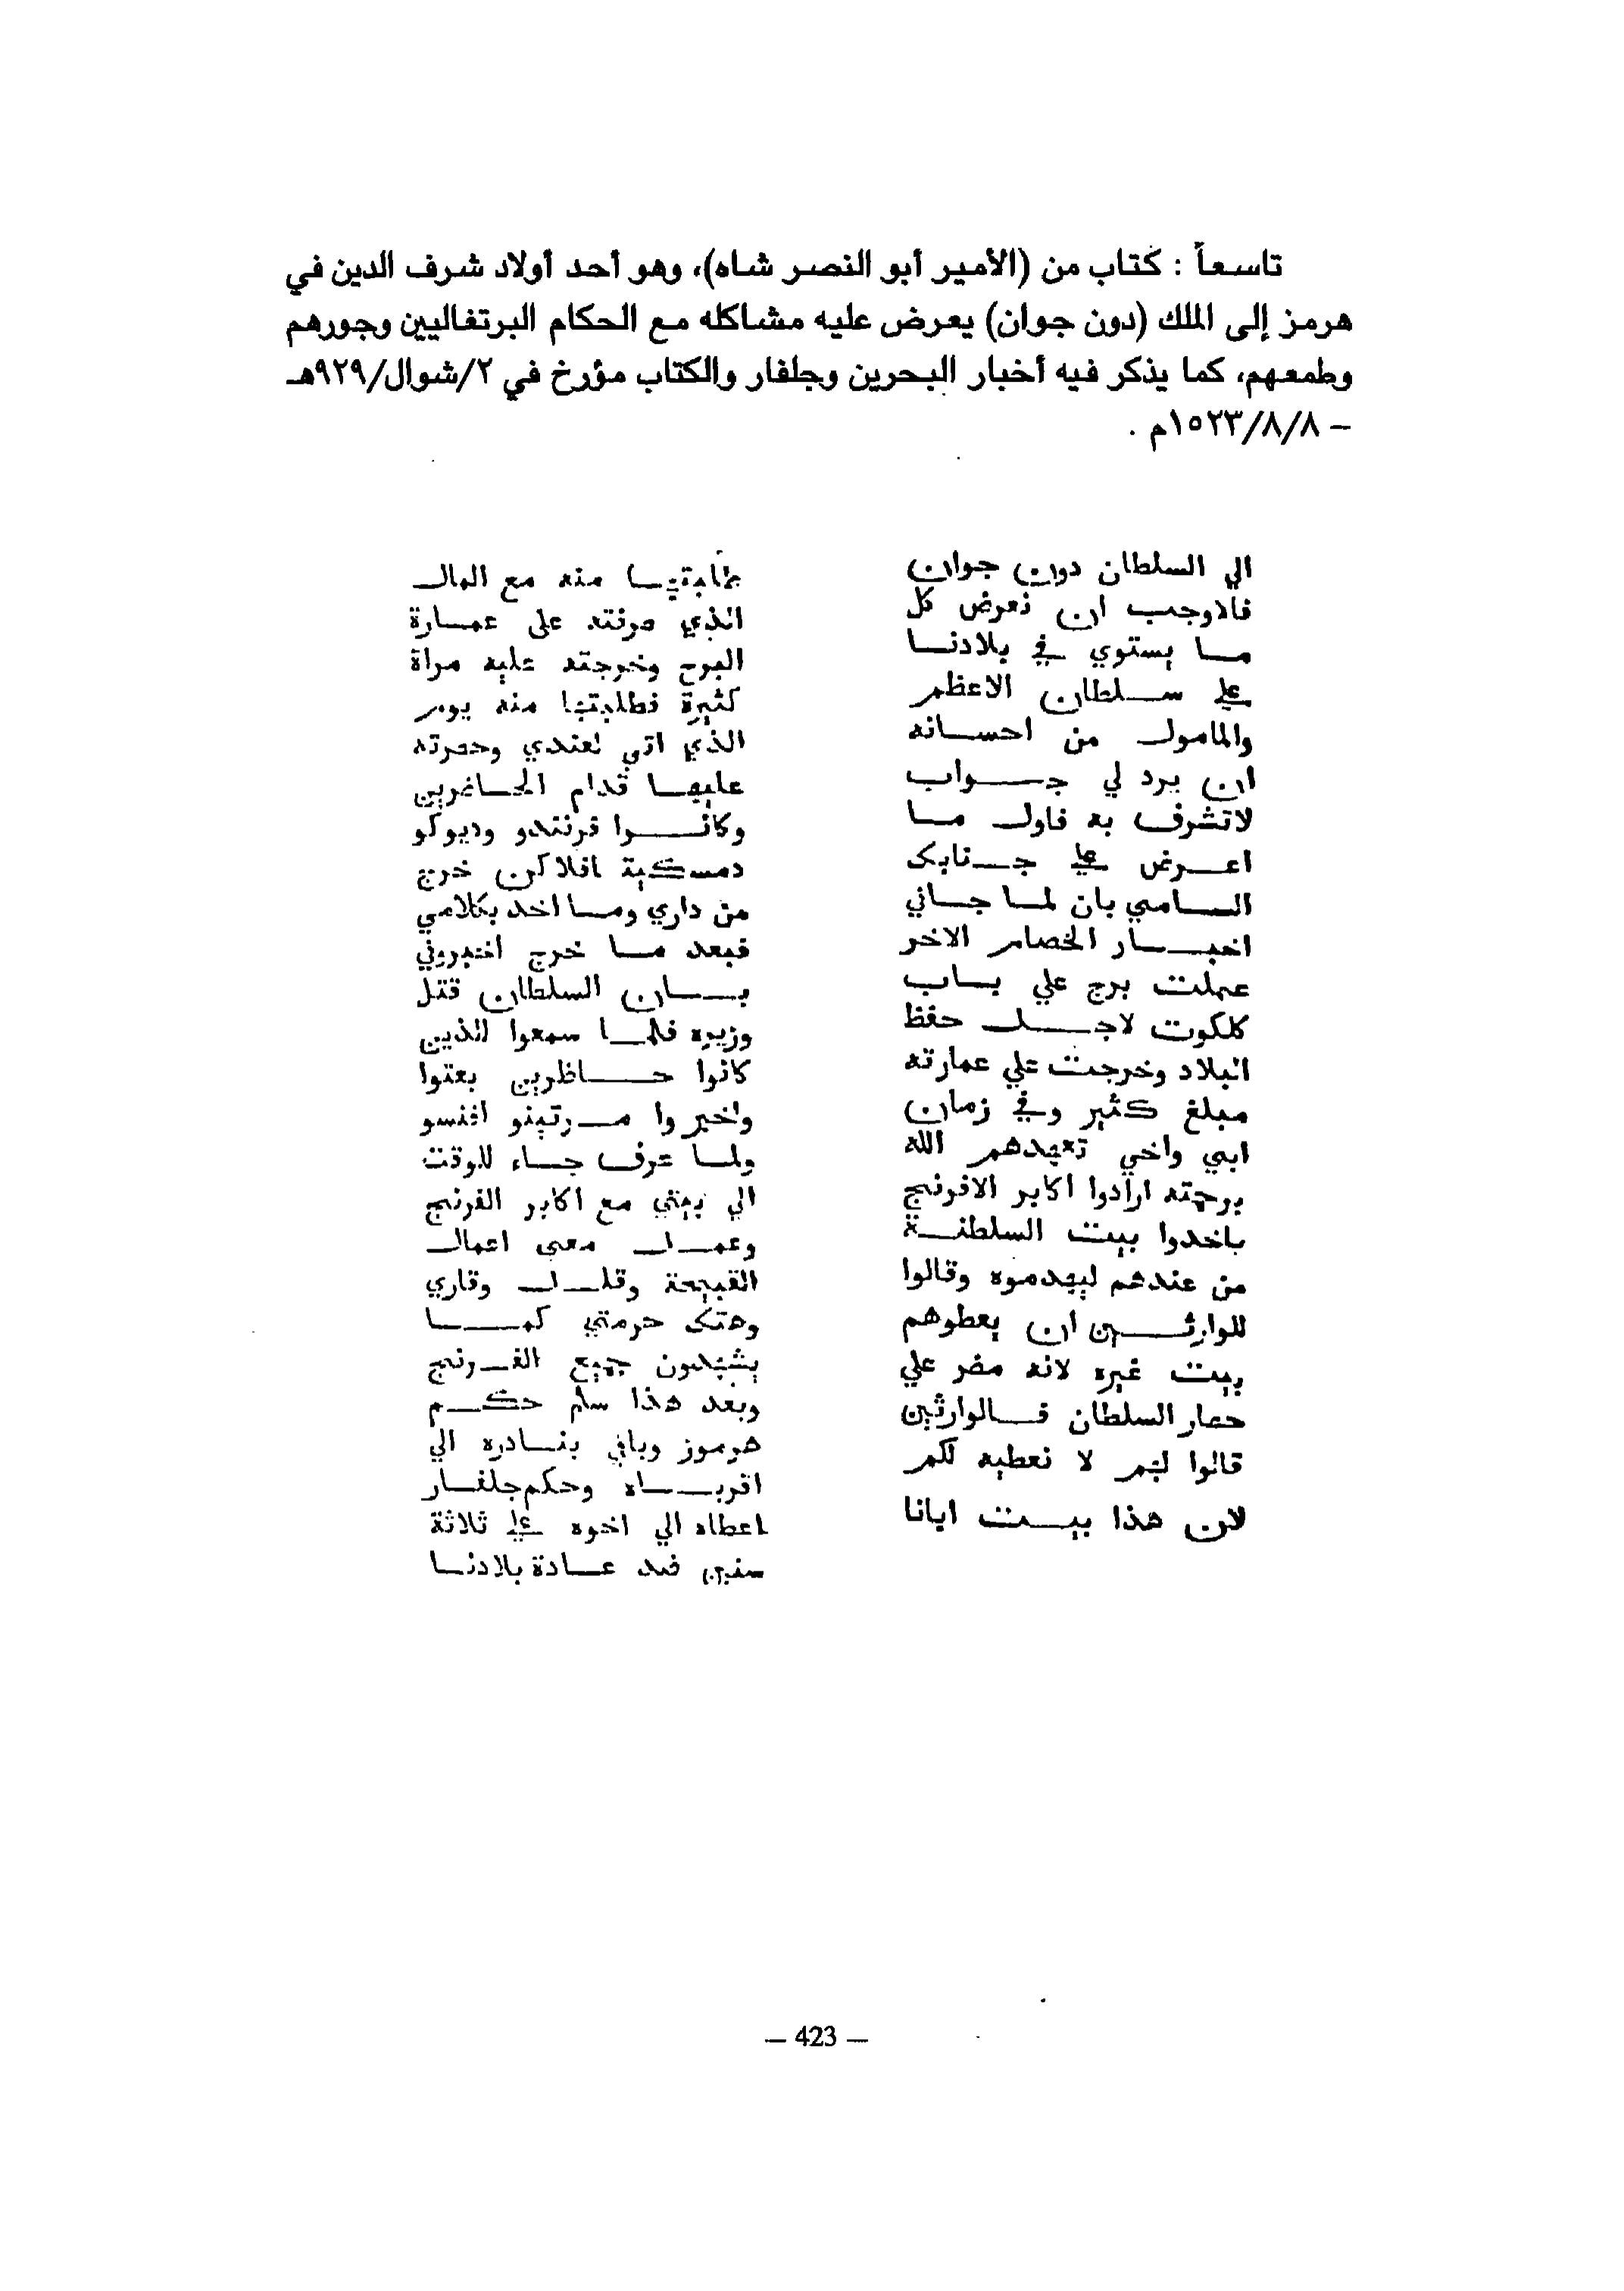 تاسعاً : كتاب من (الأمير أبو النصر شاه)، وهو أحد أولاد شرف الدين في
هرمز إلى الملك (دون جوان) يعرض عليه مشاكله مع الحكام البرتغاليين وجورهم
وطمعهم، كما يذكر فيه أخبار البحرين وجلفار والكتاب مؤرخ في ٢/شوال/٩٢٩هـ
– ١٥٢٣/٨/٨م .
الي السلطان دون جوان
فالاوجب ان نعرض كل
ما يستوي في بلادنا
علي سلطان الاعظم
والمامول من احسانه
ان يرد لي جواب
لاتشرف به فاول ما
اعرض علي جنابك
السامي بان لما جاني
اخبار الخصام الاخر
عملت برج علي باب
كلكوت لاجل حفظ
البلاد وخرجت علي عمارته
مبلغ كثير وفي زمان
ابي واخي تعهدهم الله
برحمته ارادوا اكابر الافرنج
ياخدوا بيت السلطنة
من عندهم ليهدموه وقالوا
للوارثين ان يعطوهم
بيت غيره لانه مضر علي
حصار السلطان فالوارثين
قالوا لهم لا نعطيه لكم
لان هذا بيت ابانا
طلبتها منه مع المال
الذي صرفته على عمارة
البرج وخرجته عليه مراة
كثيرة فطلبتها منه يوم
الذي اتي لعندي وحصرته
عليها قدام الحاضرين
وكانوا فرنندو وديوكو
دمسكيه افلاكن خرج
من داري وما اخد بكلامي
فبعد ما خرج اختبروني
بان السلطان قتل
وزيره فلما سمعوا الذين
كانوا حاظرين بعتوا
واخبروا مرتينو افنسو
ولما عرف جاء للوقت
الي بيتي مع اكابر الفرنج
وعمل معي اعمال
القبيحة وقلل وقاري
وهتك حرمتي كما
يشهدون جميع الفرنج
وبعد هذا سلم حكم
هرموز وباقي بنادره الي
اقرباه وحكم جلفار
اعطاه الي اخوه علي ثلاثة
سنين ضد عادة بلادنا
– 423 –